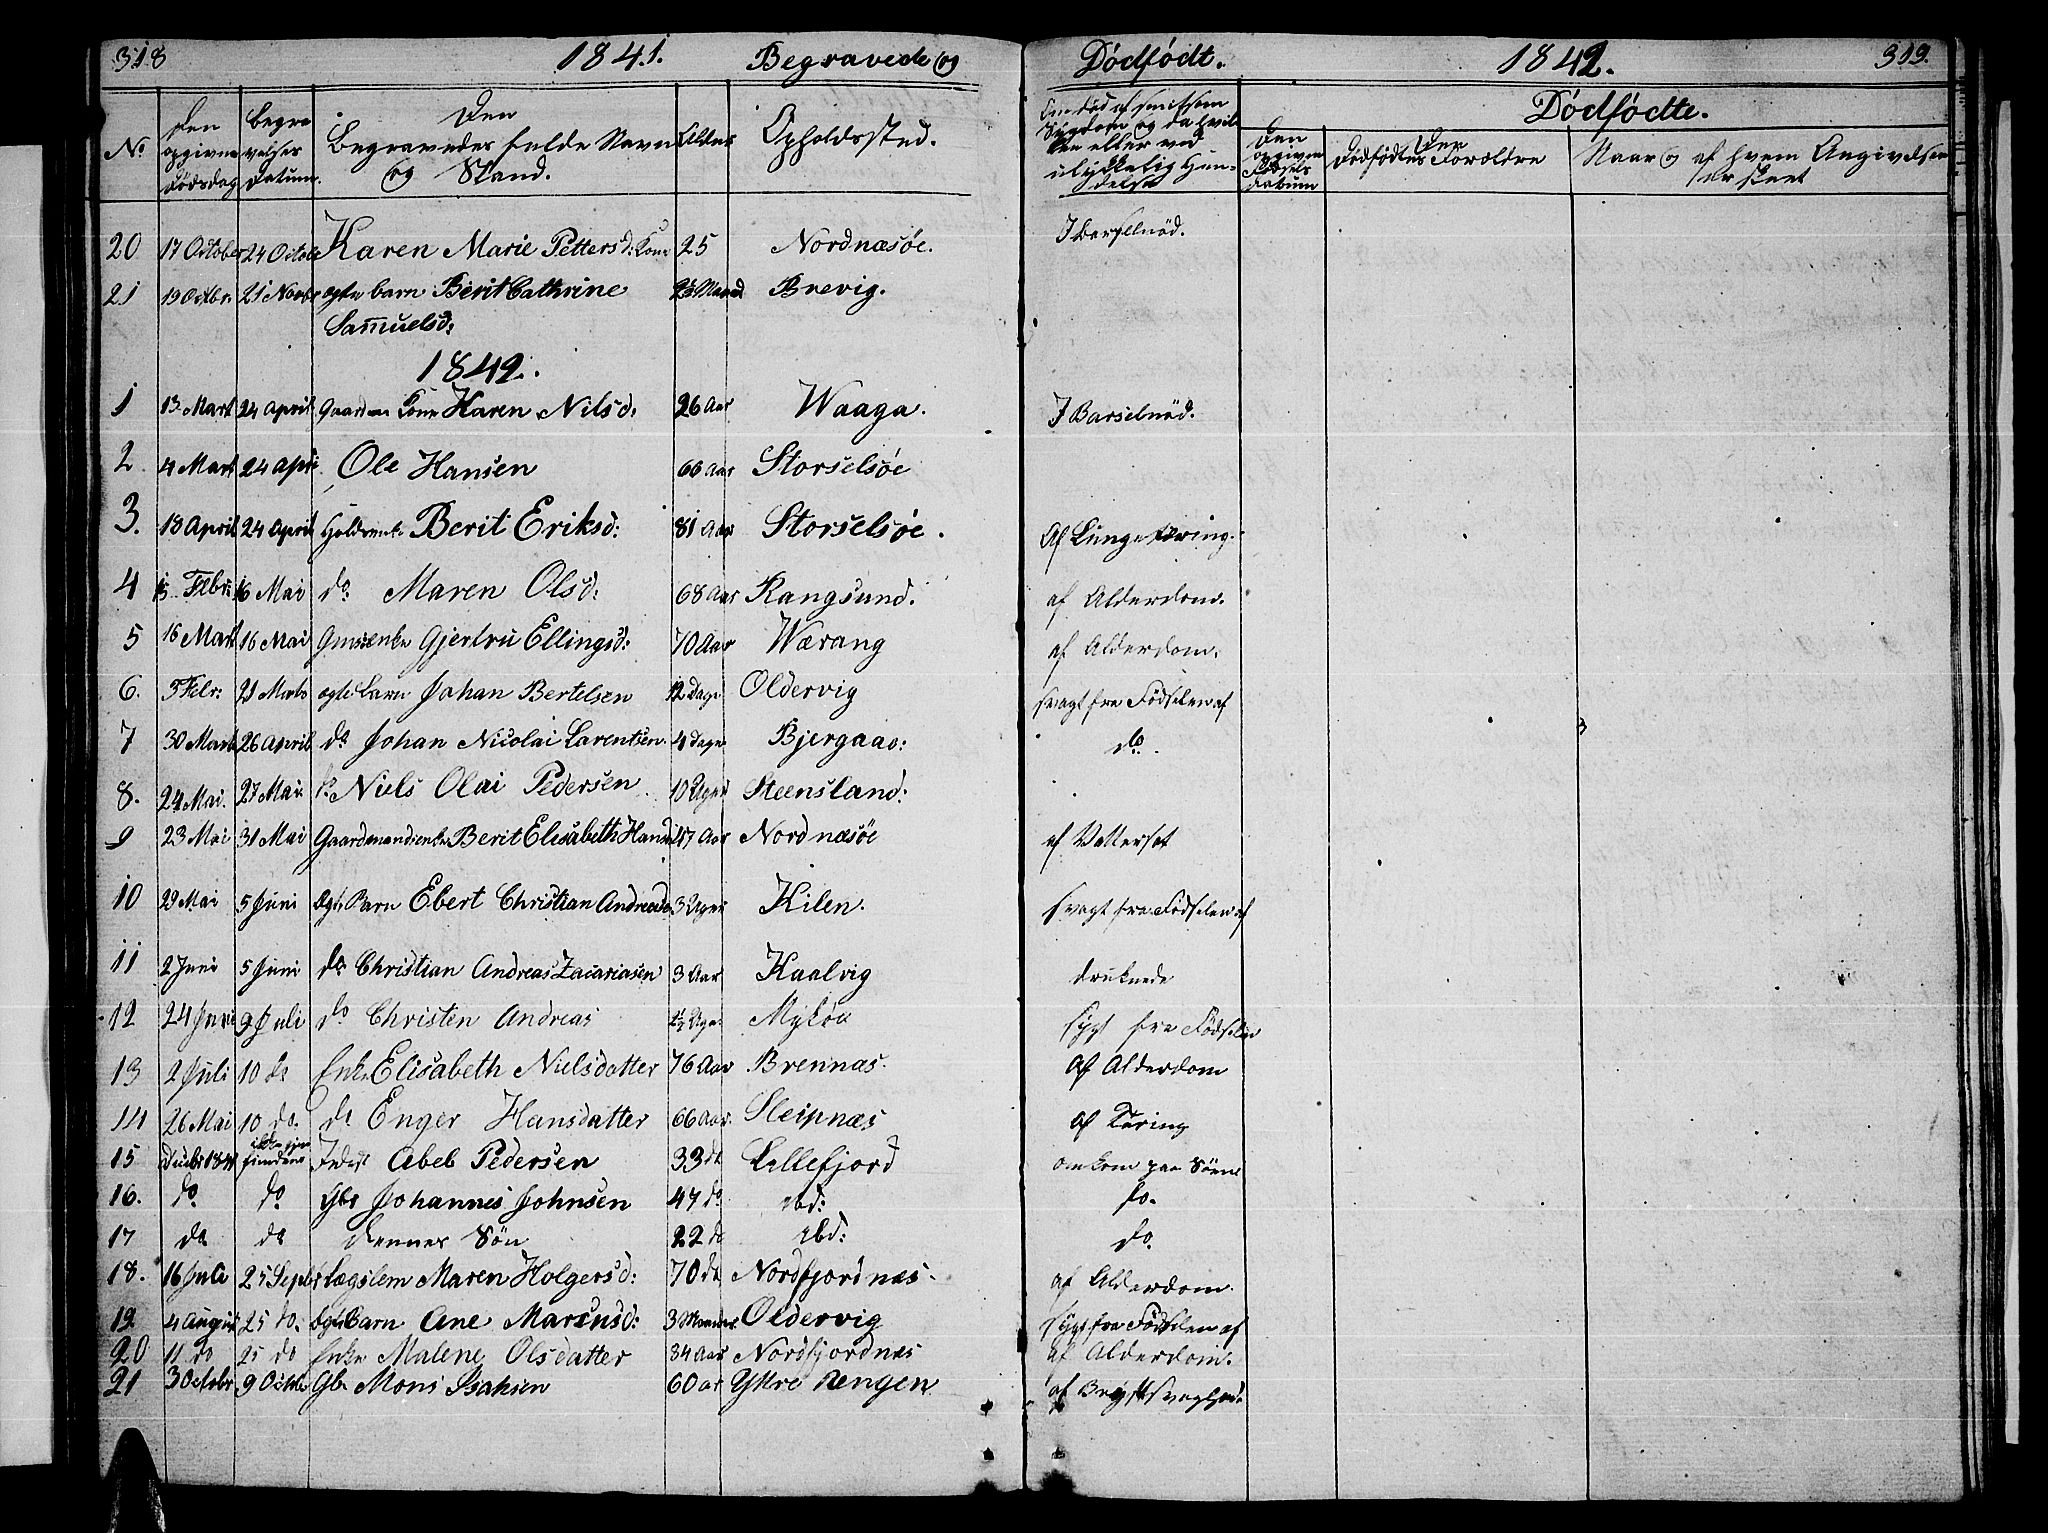 318 1841. Begravede og Dødfødt. 1842. 319.
No. Den opgivne Dødsdag Begravelses Datum. Den Begravedes fulde Navn og Stand. Alder Opholdssted. Om død af smitsom Sygdom og da hvilken eller ved ulykkelig Hændelse Dødfødte. Den opgivne Fødsels datum Den Dødfødtes Forældre Naar og af hvem Angivelsen er skeet
20 17 October 24 Octob Karen Marie Petters d: Kone 25 Nordnæsøe. I Barselnød.
21 19 Octbr. 21 Novbr ægte barn Berit Cathrine Samuelsd: Maaned Brevig.
1842.
1 13. Mart 24 April Gaardm Kone Karen Nilsd: 26 Aar Waaga. I Barselnød.
2. 4 Mart 24 Apri Ole Hansen 66 Aar Storselsøe
3. 18 April 24 April Berit Eriksd: 81 Aar Storselsøe. Af Lungetæring.
4 15 Febr: 16 Mai do Maren Olsd: 68 Aar Rangsund. af Alderdom.
5 16 Mart 16 Mai Gjertru Ellingsd: 70 Aar Wærang af Alderdom.
6. 5 Febr: 21 Marts ægte barn Johan Bertelsen 12 Dage Oldervig svagt fra Fødselen af
7 30 Marts 26 April do Johan Nicolai Larentsen 4 dage Bjergaae: do.
8. 24 Mai. 27 Mai do Niels Olai Pedersen 10 Uger Steensland:
9 23 Mai 31 Mai Gaardmandsenke Berit Elisabeth Hansd 47 Aar Nordnæsøe af Vattersot
10 29 Mai 5 Juni ægte Barn Ebert Christian Andreas 3 Uger Kilen. svagt fra Fødselen af
11 2 Juni 5 Juni do Christian Andreas Zacariasen 3 Aar Kaalvig druknede
12 24 Juni 9 Juli do Christen Andreas Uge. sygt fra Fødselen
13 2 Juli 10 do Enke Elisabeth Nielsdatter 76 Aar Brennæs. Af Alderdom
14 26 Mai 10 do. do Enger Hansdatter 66 Aar. Sleipnæs af Tæring
15 Decbr 1841 ikke igjenfundene Inderst Abel Pedersen 33 do Lillefjord omkom paa Søen
16. do do Gbr Johannes Johnsen 47 do. ibd: do.
17 do do dennes Søn 22 do ibd: do.
18. 16 Juli 25 Septbr Lægslem Maren Holgersd: 70 do Nordfjordnæs. af Alderdom.
19 4 August 25 do. ægte Barn Ane Marcusd: 3 Maaneder Oldervig sygt fra Fødselen af
20 11 do 25 do Enke Malene Olsdatter 84 Aar Nordfjordnæs af Alderdom.
21 3 Octobr 9 Octbr Gbr Mons Isaksen 60 ar Ytre Rengen af Brystsvaghed